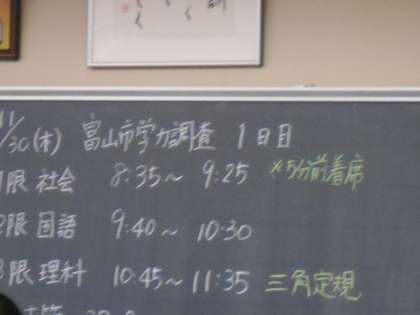 11/30(木) 富山市学力調査 1日目
1限 社会 8:35～ 9:25 ※5分前着席
2限 国語 9:40～ 10:30
3限 理科 10:45～11:35 三角定規